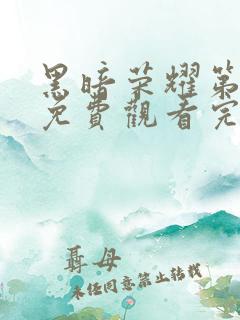 黑暗荣耀第
免費觀看完
聶母
未经同意禁止转载